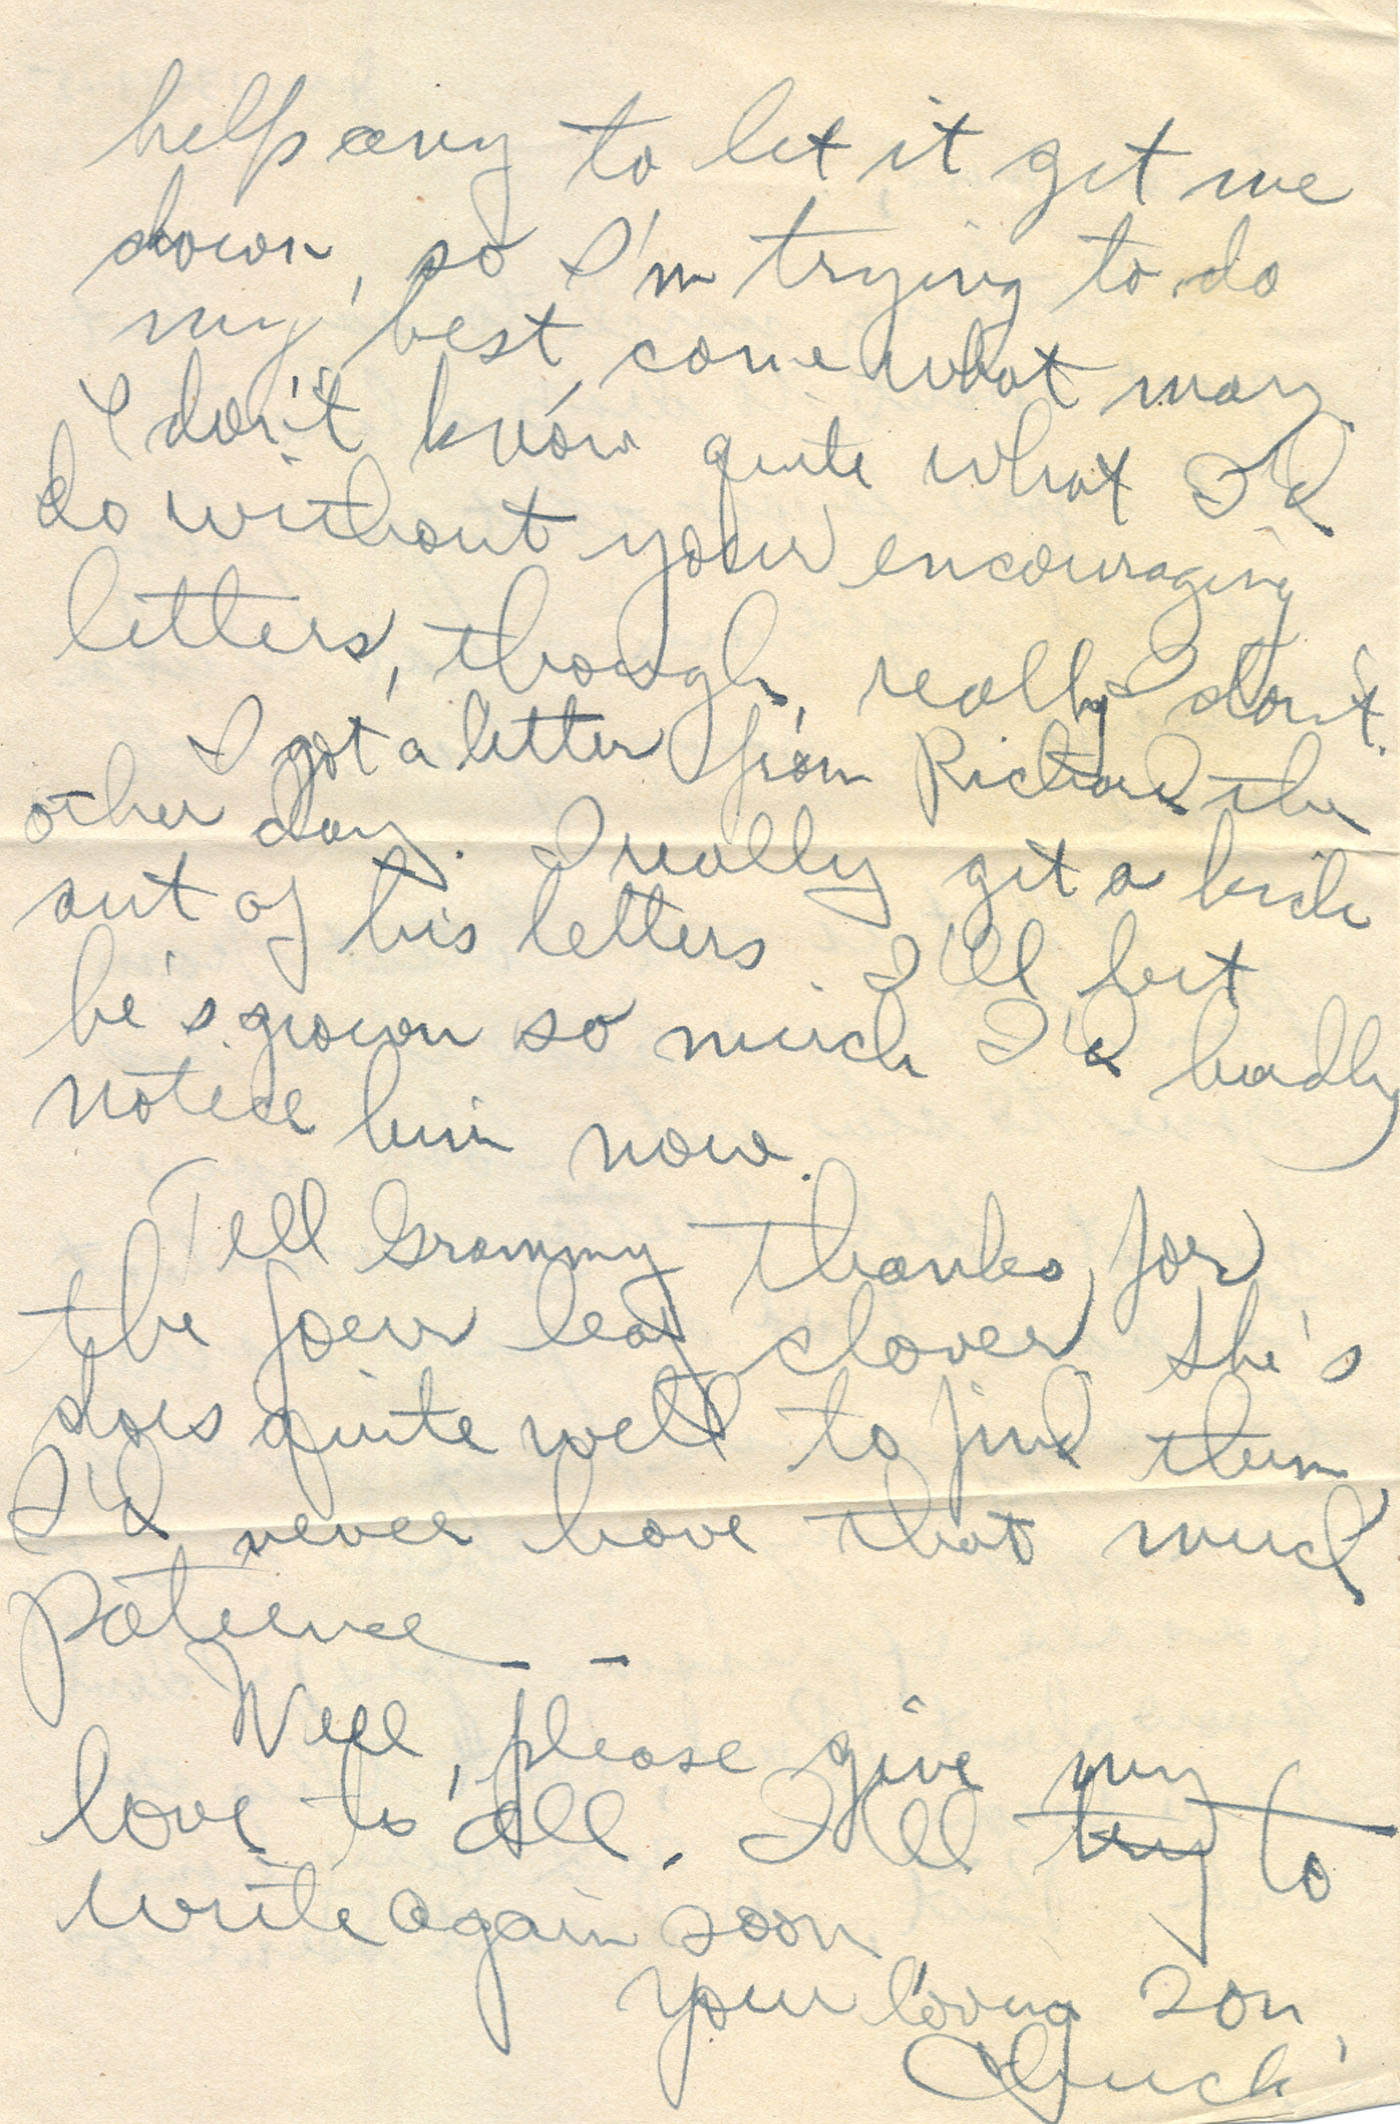 help any to let it get me
down, so I'm trying to do
my best come what may.
I don't know quite what I'd
do without your encouraging
letters, though, really I don't.
I got a letter from Richard the
other day. I really get a kick
out of his letters. I'll bet
he's grown so much I'd hardly
notice him now.
Tell Grammy thanks for
the four leaf clover. She's
does quite well to find them
I'd never have that much
patience --
Well, please give my
love to all. I'll try to
write again soon
your loving son,
Chuck